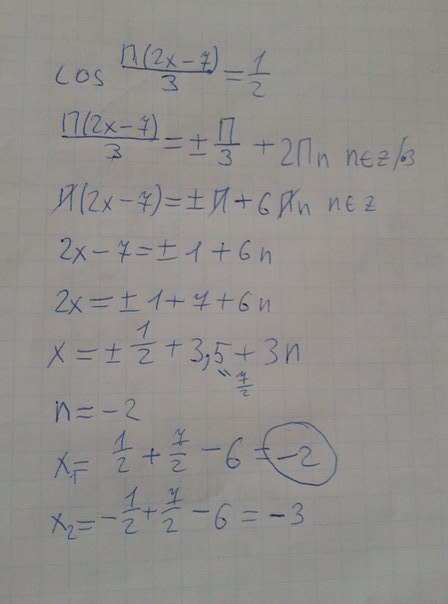 cos П(2x-7)/3 = 1/2
П(2x-7)/3 = ± П/3 + 2Пn n∈z |·3
П(2x-7) = ± П + 6Пn n∈z
2x-7 = ± 1 + 6n
2x = ± 1 + 7 + 6n
x = ± 1/2 + 3,5 + 3n
" 7/2
n = -2
x₁ = 1/2 + 7/2 - 6 = -2
x₂ = - 1/2 + 7/2 - 6 = -3